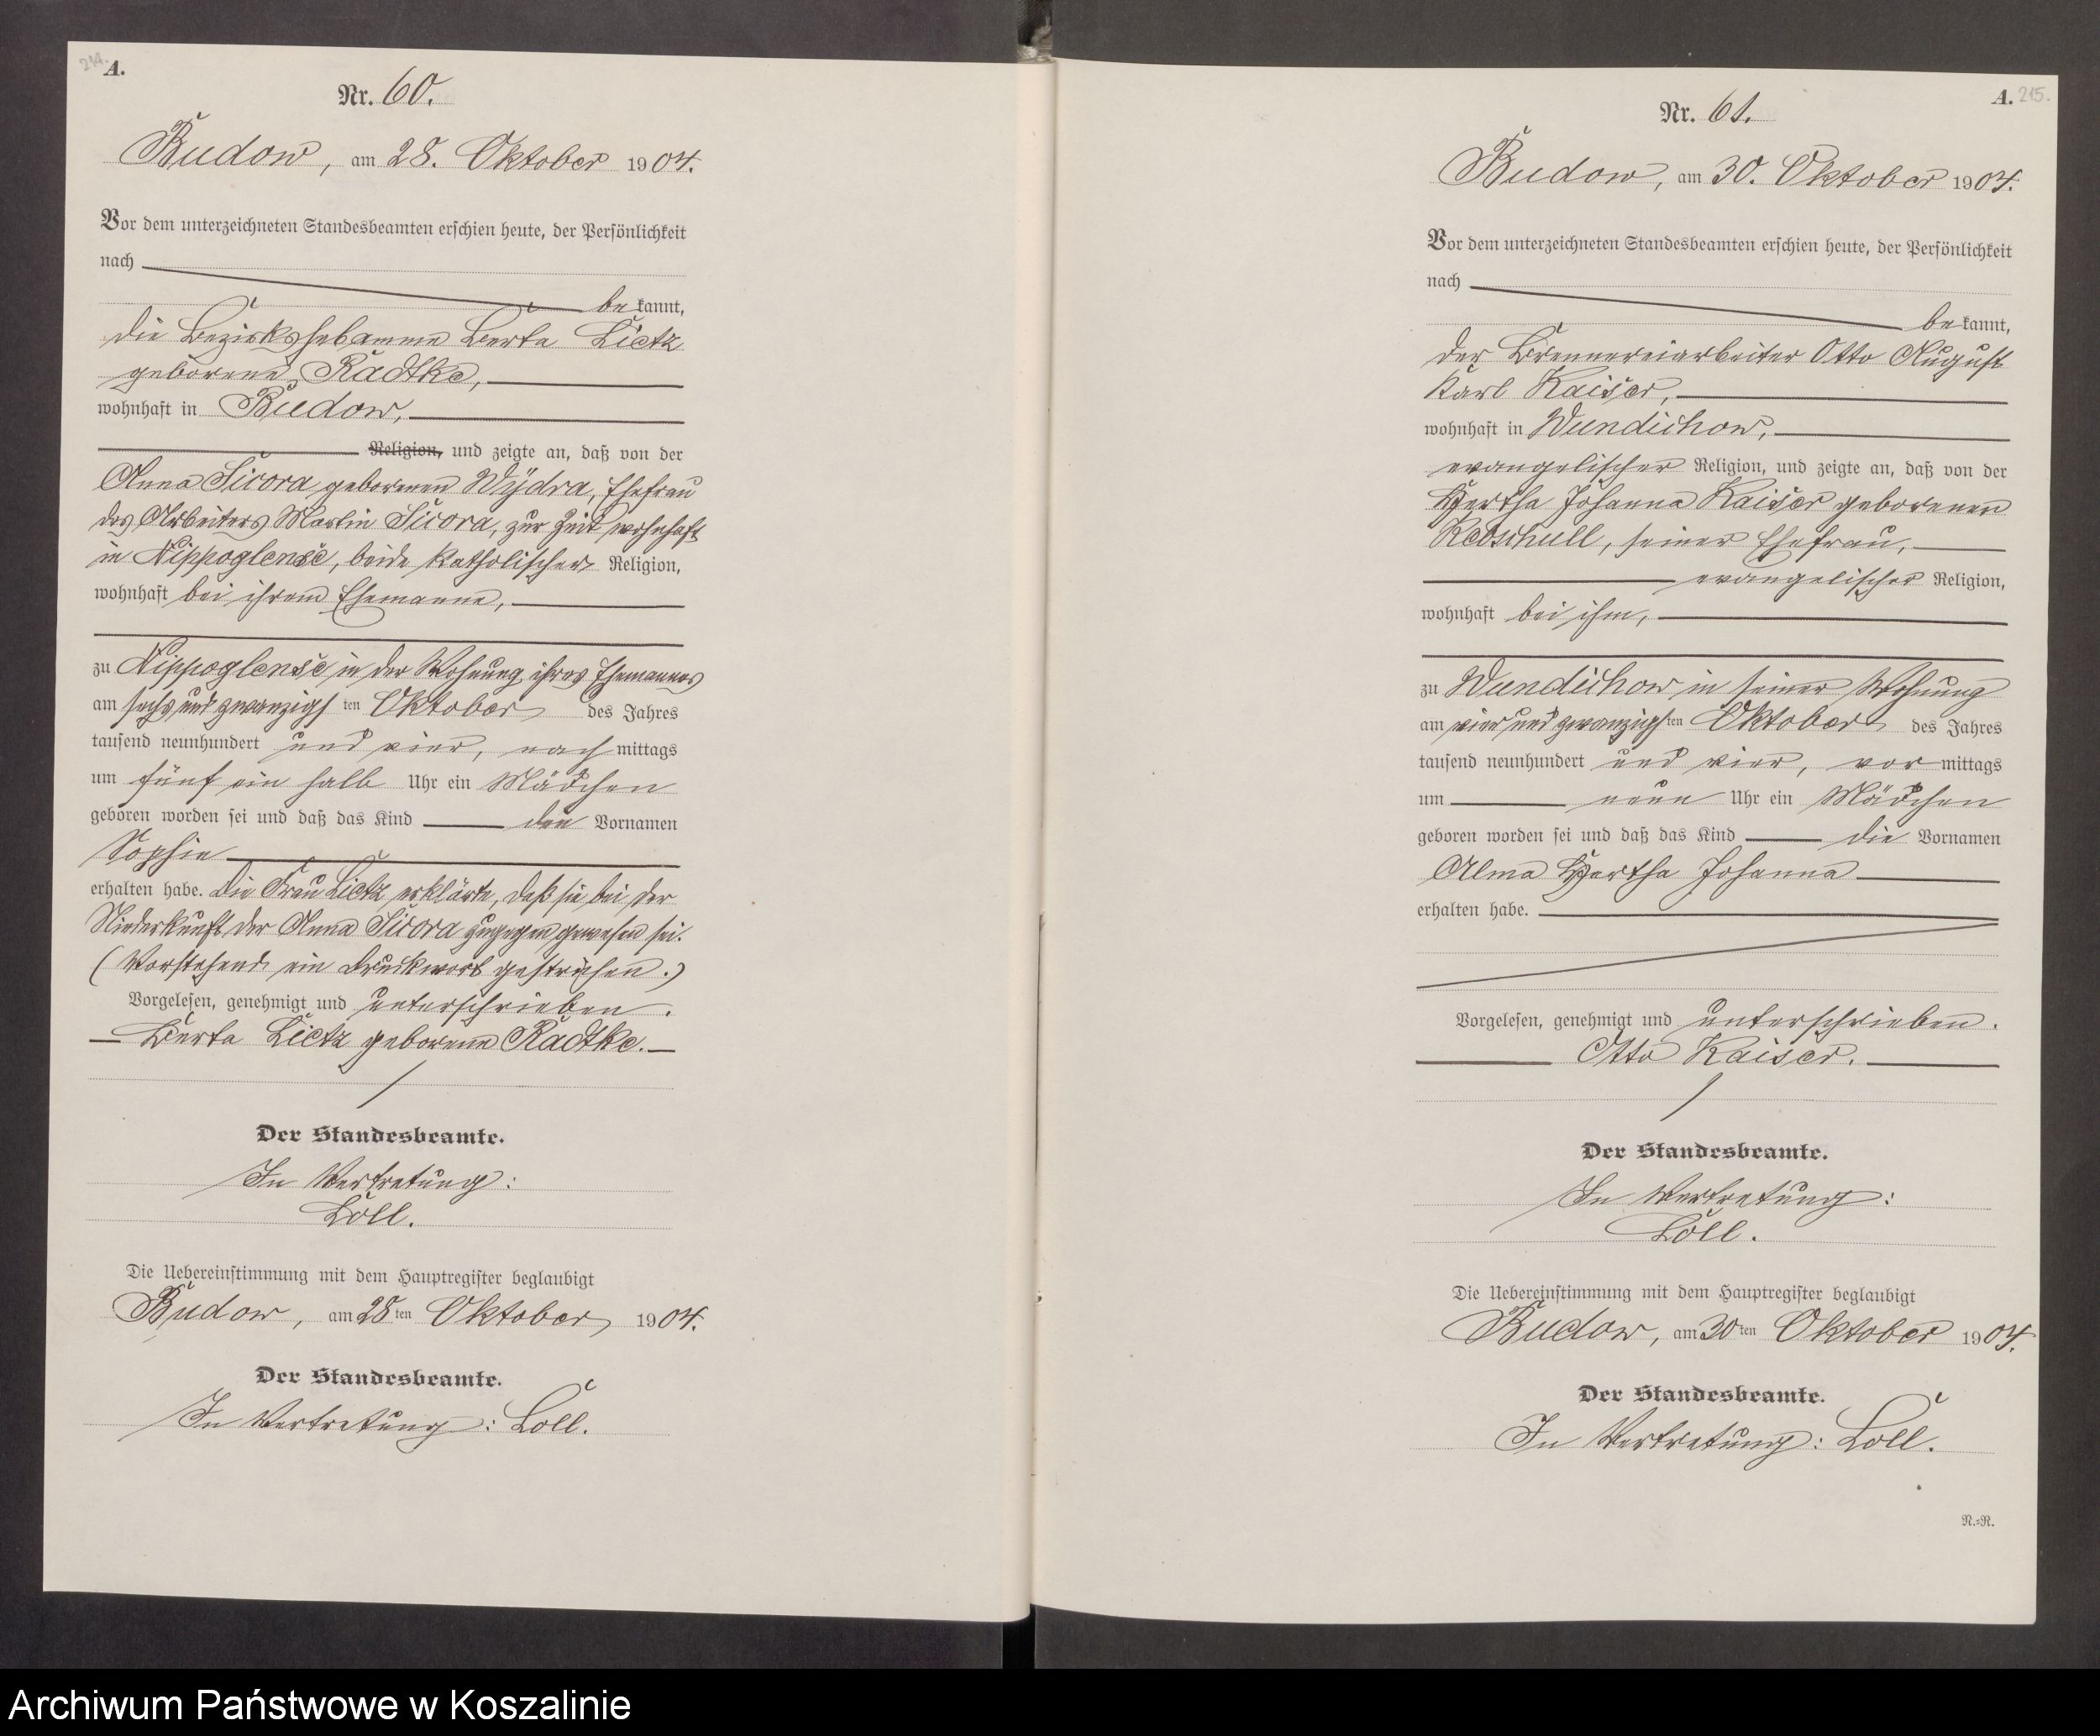 214.
A.
Nr. 60.
Budow, am 28. Oktober 1904.
Vor dem unterzeichneten Standesbeamten erschien heute, der Persönlichkeit
nach
be kannt,
die Bezirkshebamme Berta Lietz
geborene Radtke,
wohnhaft in Budow,
Religion, und zeigte an, daß von der
Anna Sicora geborenen Wÿdra, Ehefrau
des Arbeiters Martin Sicora, zur Zeit wohnhaft
in Nippoglense, beide katholischer Religion,
wohnhaft bei ihrem Ehemanne,
zu Nippoglense in der Wohnung ihres Ehemannes
am sechs und zwanzigsten Oktober des Jahres
tausend neunhundert und vier, nach mittags
um fünf ein halb Uhr ein Mädchen
geboren worden sei und daß das Kind den Vornamen
Sophie
erhalten habe. Die Frau Lietz erklärte, daß sie bei der
Niederkunft der Anna Sicora zugegen gewesen sei.
(Vorstehend ein Druckwort gestrichen.)
Vorgelesen, genehmigt und unterschrieben.
Berta Lietz geborene Radtke.
Der Standesbeamte.
In Vertretung:
Loll.
Die Uebereinstimmung mit dem Hauptregister beglaubigt
Budow, am 28ten Oktober 1904.
Der Standesbeamte.
In Vertretung: Loll.
A. 215.
Nr. 61.
Budow, am 30. Oktober 1904.
Vor dem unterzeichneten Standesbeamten erschien heute, der Persönlichkeit
nach
be kannt,
der Brennereiarbeiter Otto August
Karl Kaiser,
wohnhaft in Wundichow,
evangelischer Religion, und zeigte an, daß von der
Hertha Johanna Kaiser geborenen
Redschull, seiner Ehefrau,
evangelischer Religion,
wohnhaft bei ihm,
zu Wundichow in seiner Wohnung
am vier und zwanzigsten Oktober des Jahres
tausend neunhundert und vier, vor mittags
um neun Uhr ein Mädchen
geboren worden sei und daß das Kind die Vornamen
Alma Hertha Johanna
erhalten habe.
Vorgelesen, genehmigt und unterschrieben.
Otto Kaiser.
Der Standesbeamte.
In Vertretung:
Loll.
Die Uebereinstimmung mit dem Hauptregister beglaubigt
Budow, am 30ten Oktober 1904.
Der Standesbeamte.
In Vertretung: Loll.
N.=R.
Archiwum Państwowe w Koszalinie